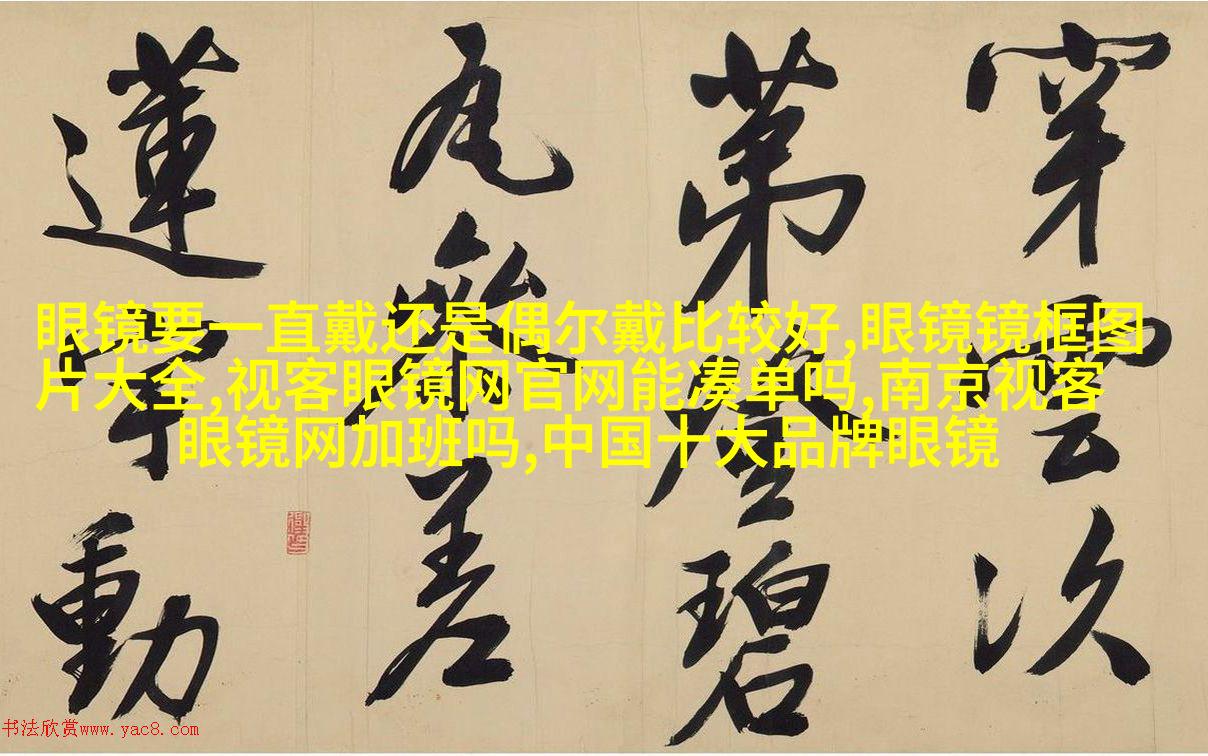 穿雲次
第登碧
瓦參差
蓮宇動
眼镜要一直戴还是偶尔戴比较好,眼镜镜框图
片大全,视客眼镜网官网能凑单吗,南京视客
眼镜网加班吗,中国十大品牌眼镜
书法欣赏www.yac8.com